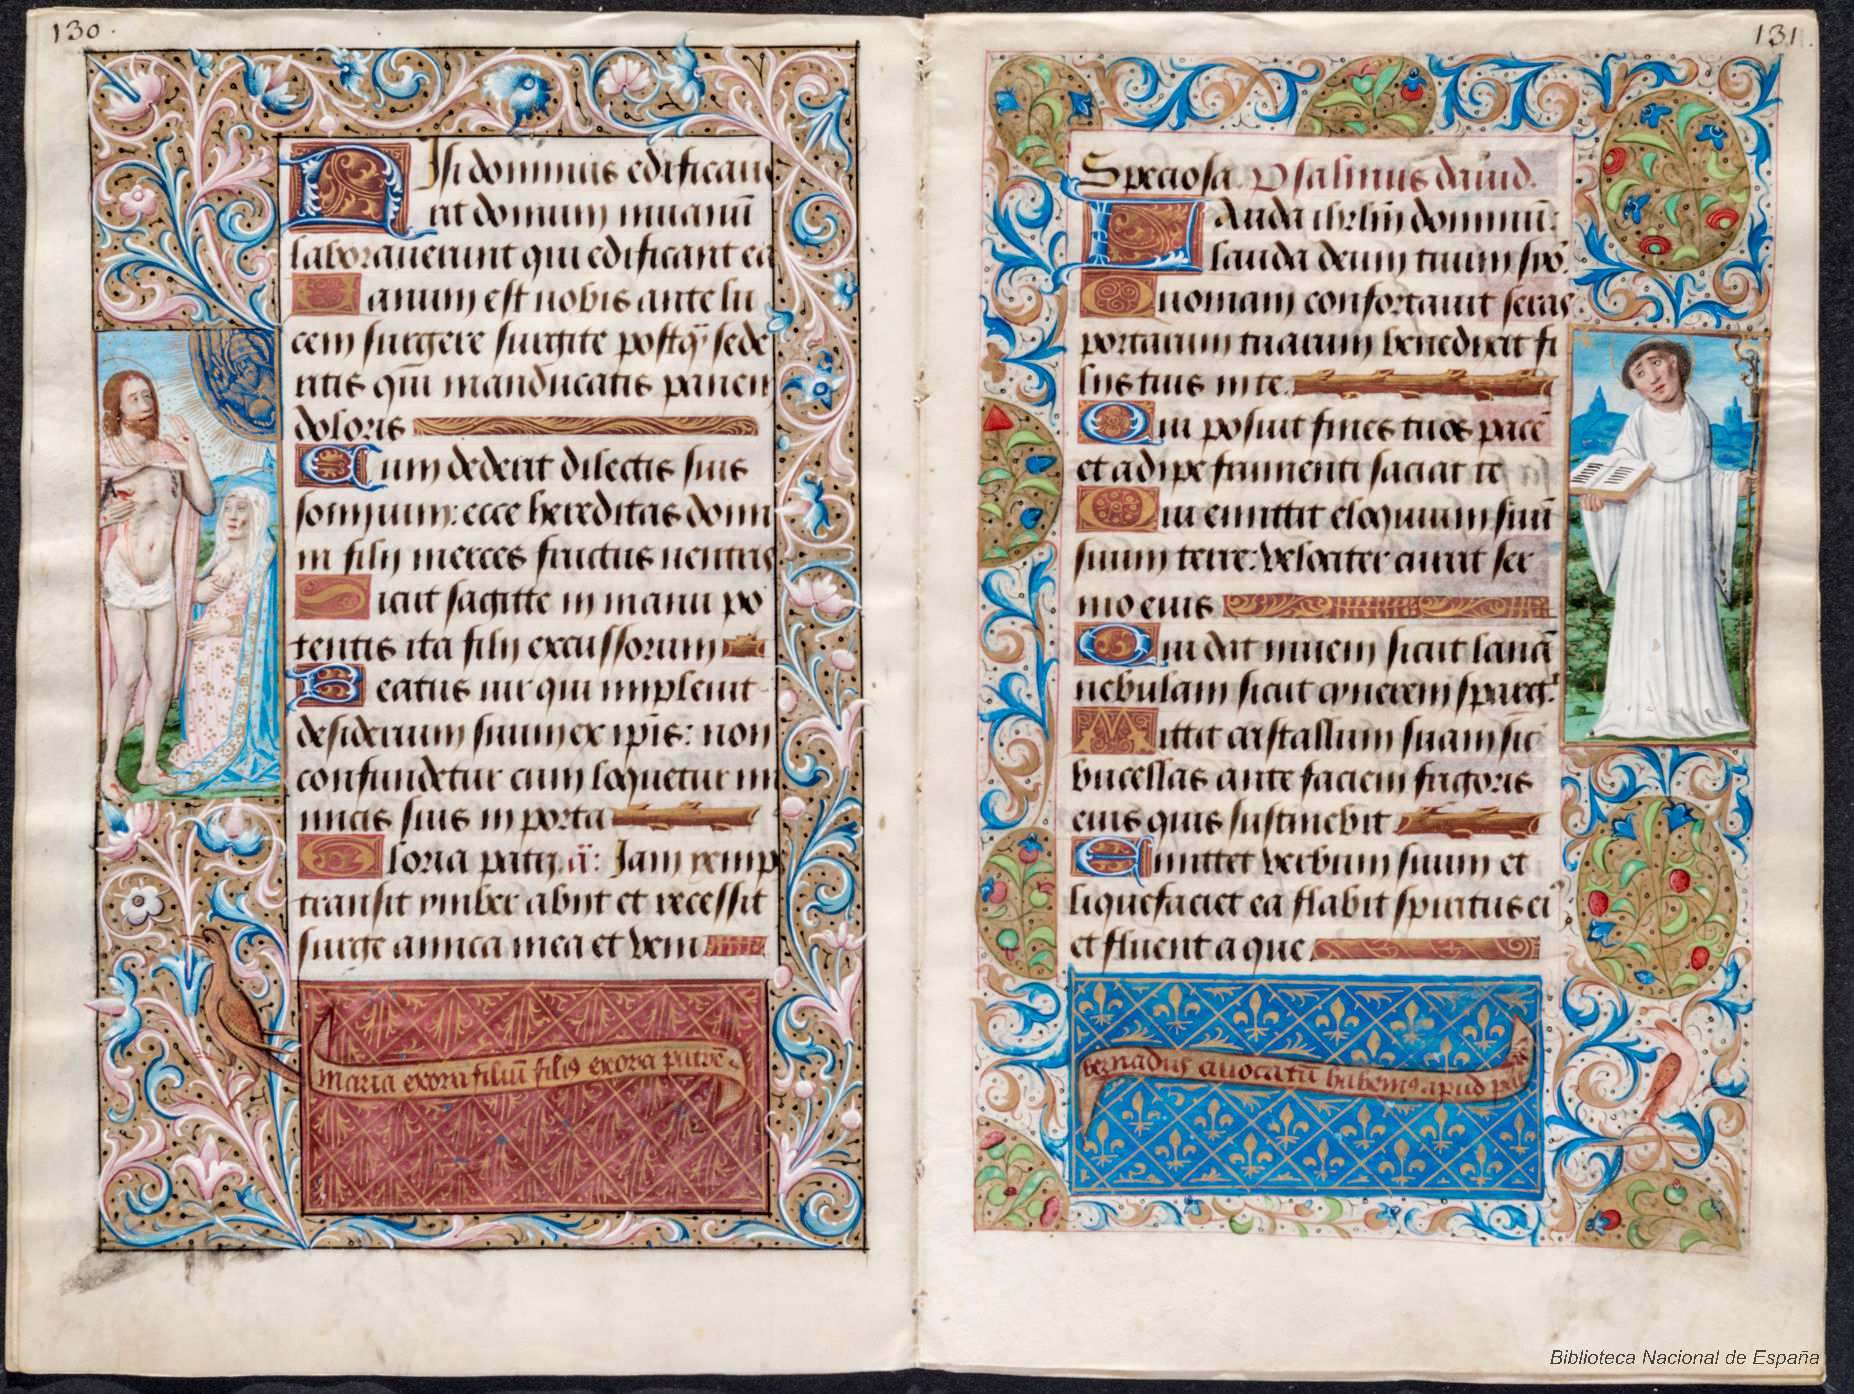 130.
Nisi dominus edificaue
rit domum in uanū
laborauerunt qui edificant eā
Uanum est uobis ante lu
cem surgere surgite postq̄ sede
ritis qui manducatis panem
doloris
Cum dederit dilectis suis
somnum: ecce hereditas domi
ni filij merces fructus uentris
Sicut sagitte in manu po
tentis ita filij excussorum
Beatus uir qui impleuit
desiderium suum ex ipis: non
confundetur cum loquetur ini
micis suis in porta
Gloria patri. ā: Jam yemps
transit ymber abijt et recessit
surge amica mea et veni
maria exora filiū filiꝯ exora patrē
131.
Speciosa. Psalmus dauid.
Lauda ihrl̄m dominū:
lauda deum tuum syō.
Quoniam confortauit seras
portarum tuarum benedixit fi
liis tuis in te.
Qui posuit fines tuos pacē
et adipe frumenti saciat te
Qui emittit eloquium suū
suum terre: velociter currit ser
mo eius
Qui dat niuem sicut lanā
nebulam sicut cynerem sparḡt
Mittit cristallum suam sic̄
bucellas ante faciem frigoris
eius quis sustinebit
Emittet verbum suum et
liquefaciet ea flabit spiritus ei9
et fluent aque
bernadus auocatū habemꝯ apud
Biblioteca Nacional de España